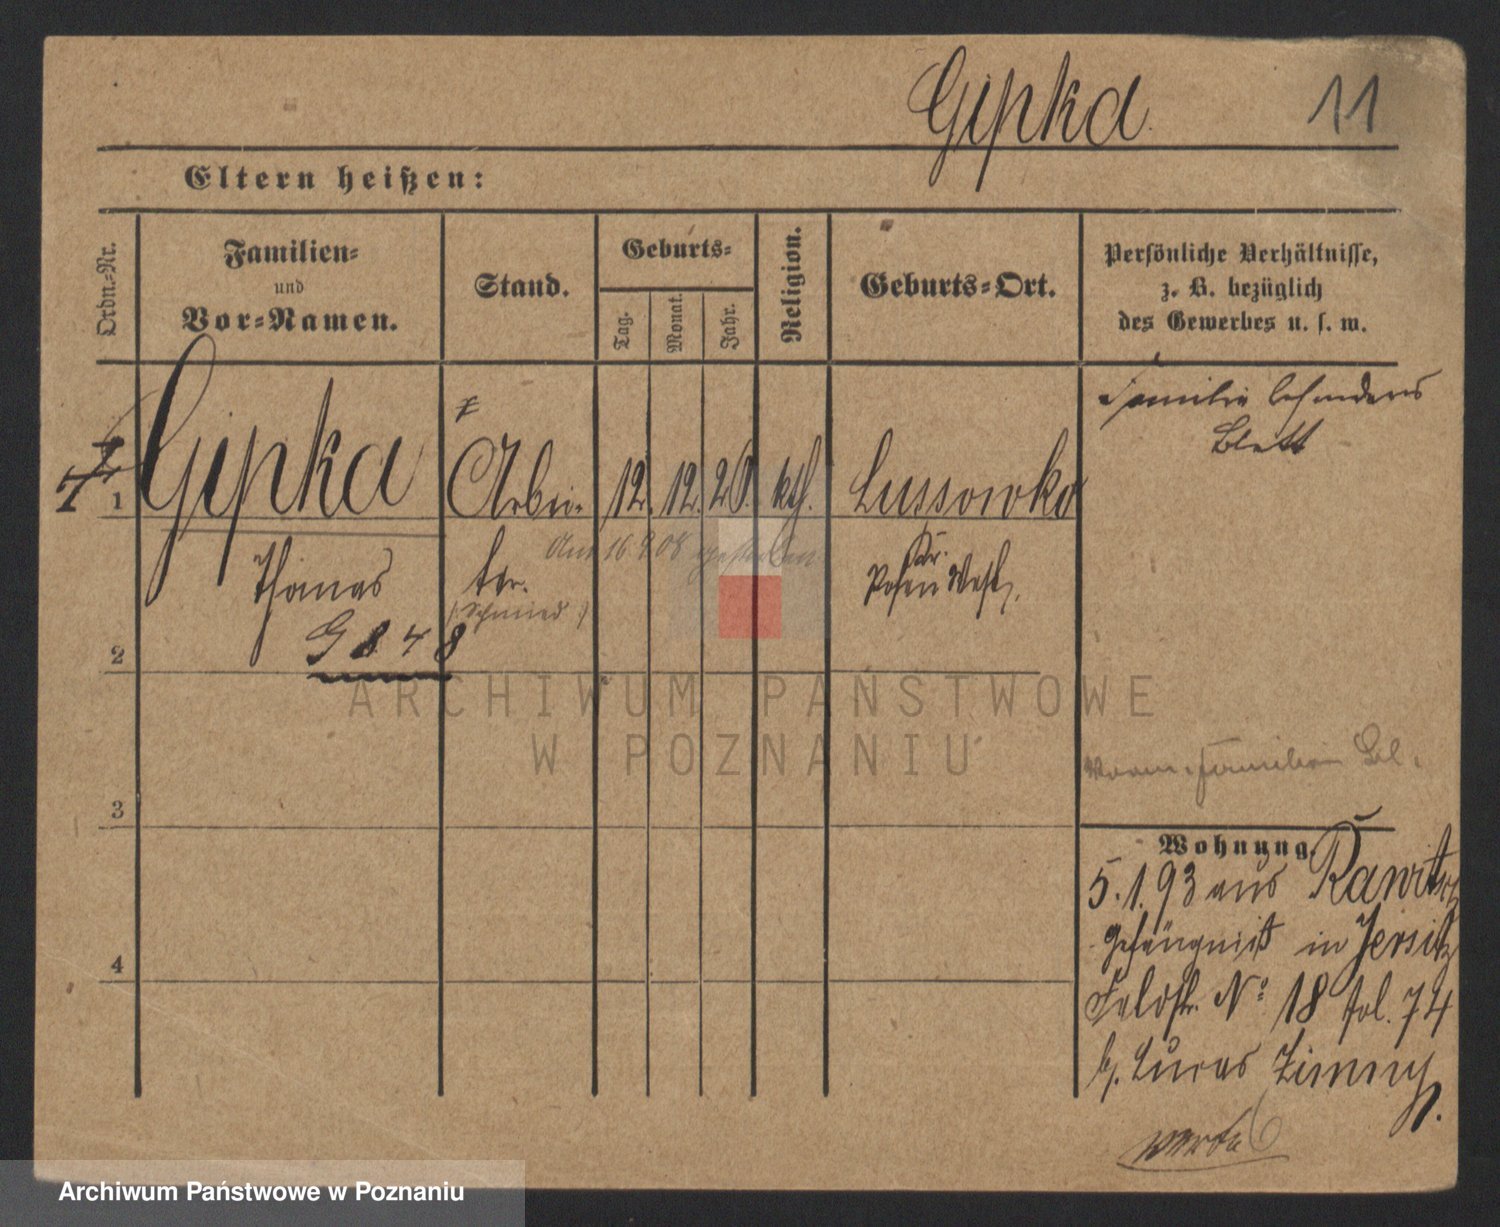 Gipka
11
Eltern heißen:
Ordn.-Nr.
Familien-
und
Vor-Namen.
Stand.
Geburts-
Tag.
Monat.
Jahr.
Religion.
Geburts-Ort.
Persönliche Verhältnisse,
z. B. bezüglich
des Gewerbes u. s. w.
1 Gipka Arbei- 12. 12. 20. kth. Lussowko
Thomas ter.
Am 16.9.08 gestorben
Kr.
Posen West.
(Schmied)
G 848
Familie besonderes
Blatt
2
ARCHIWUM PAŃSTWOWE
W POZNANIU
3
4
Familien Bl.
Wohnung.
5.1.93 aus Rawitsch
Gefängniß in Jersitz
Feldstr. No 18 fol. 74
b. Lucas Zimny.
Archiwum Państwowe w Poznaniu